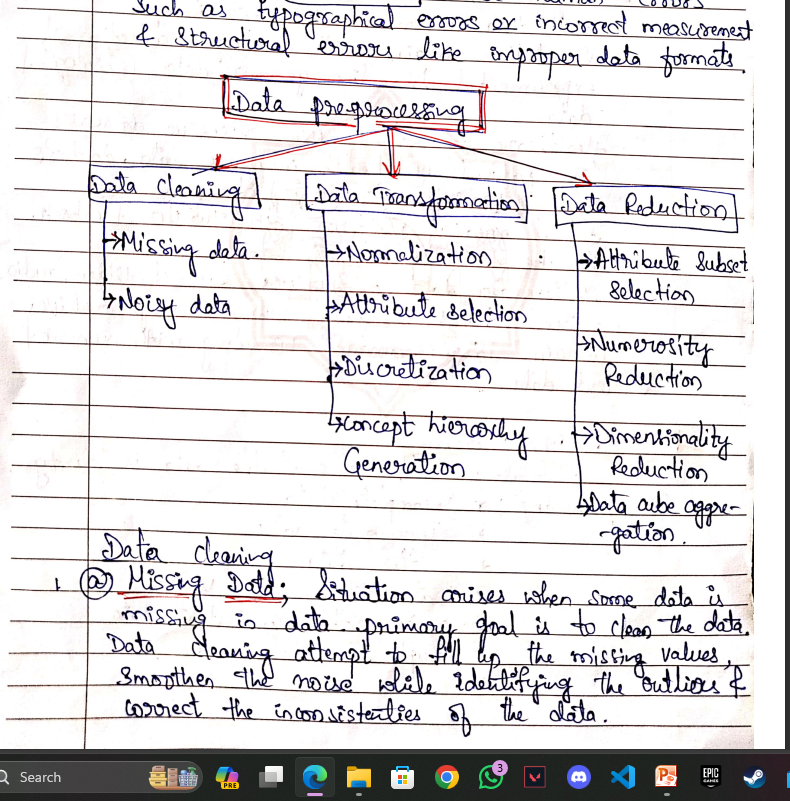 such as typographical errors or incorrect measurement
& structural errors like improper data formats.
Data pre-processing
Data Cleaning
→Missing data.
→Noisy data
Data Transformation
→Normalization
→Attribute selection
→Discretization
→concept hierarchy
Generation
Data Reduction
→Attribute Subset
Selection
→Numerosity
Reduction
→Dimensionality
Reduction
→Data cube aggre-
-gation.
Data cleaning
1. (a) Missing Data; Situation arises when some data is
missing in data. primary goal is to clean the data.
Data cleaning attempt to fill up the missing values,
Smoothen the noise while identifying the outliers &
correct the inconsistenties of the data.
Search
PRE
3
EPIC
GAMES